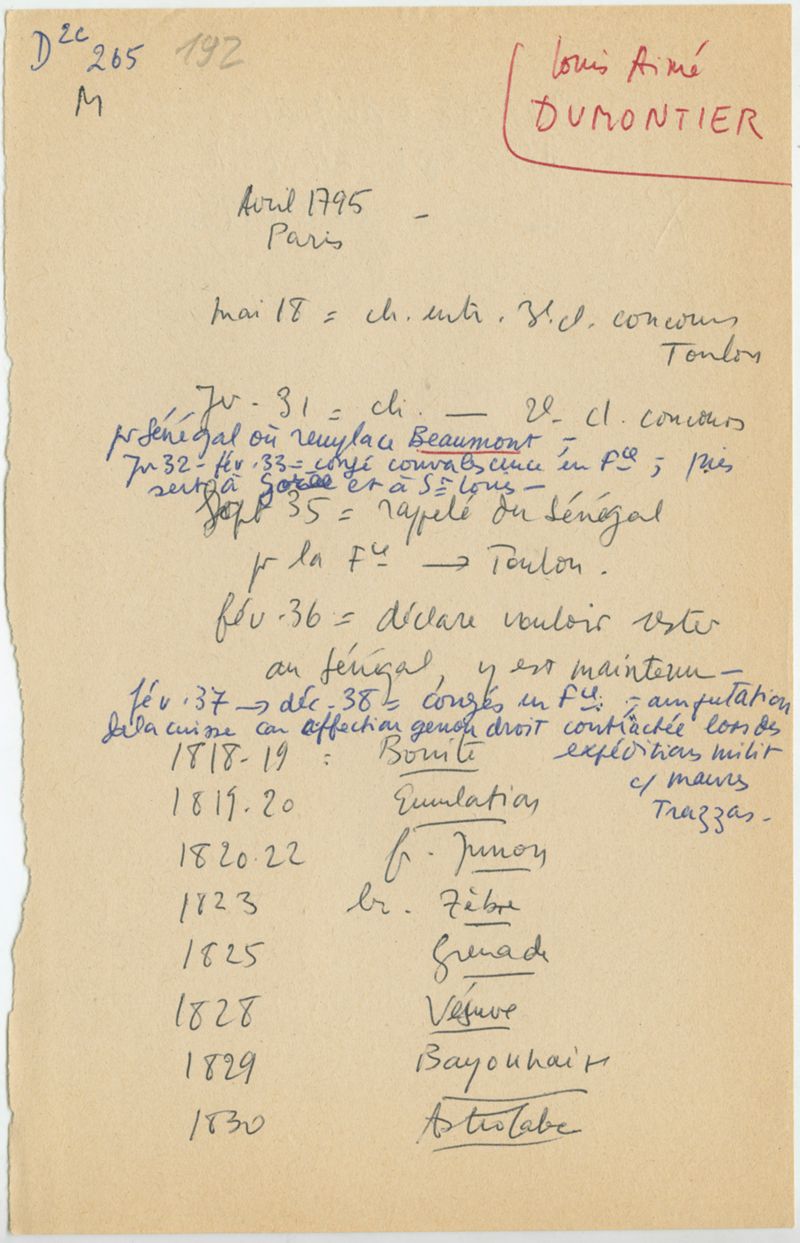 D2c 265 192
M
Louis Aimé
DUMONTIER
Avril 1795 -
Paris
mai 18 = ch. entr. 3e cl. concours
Toulon
Jv. 31 = ch. — 2e cl. concours
pr Sénégal où remplace Beaumont -
Jv 32 - fév. 33 = congé convalescence en Fce ; puis
sert à Gorée et à St Louis -
Sept 35 = rappelé du Sénégal
pr la Fce → Toulon.
fév. 36 = déclare vouloir rester
au Sénégal, y est maintenu -
fév. 37 → déc. 38 = congés en Fce ; = amputation
de la cuisse car affection genou droit contractée lors des
expéditions milit
c/ maures
Trazzas.
1818-19 : Bonite
1819.20 Emulation
1820.22 fr. Junon
1823 br. Zèbre
1825 Grenade
1828 Vésuve
1829 Bayonnaise
1830 Astrolabe